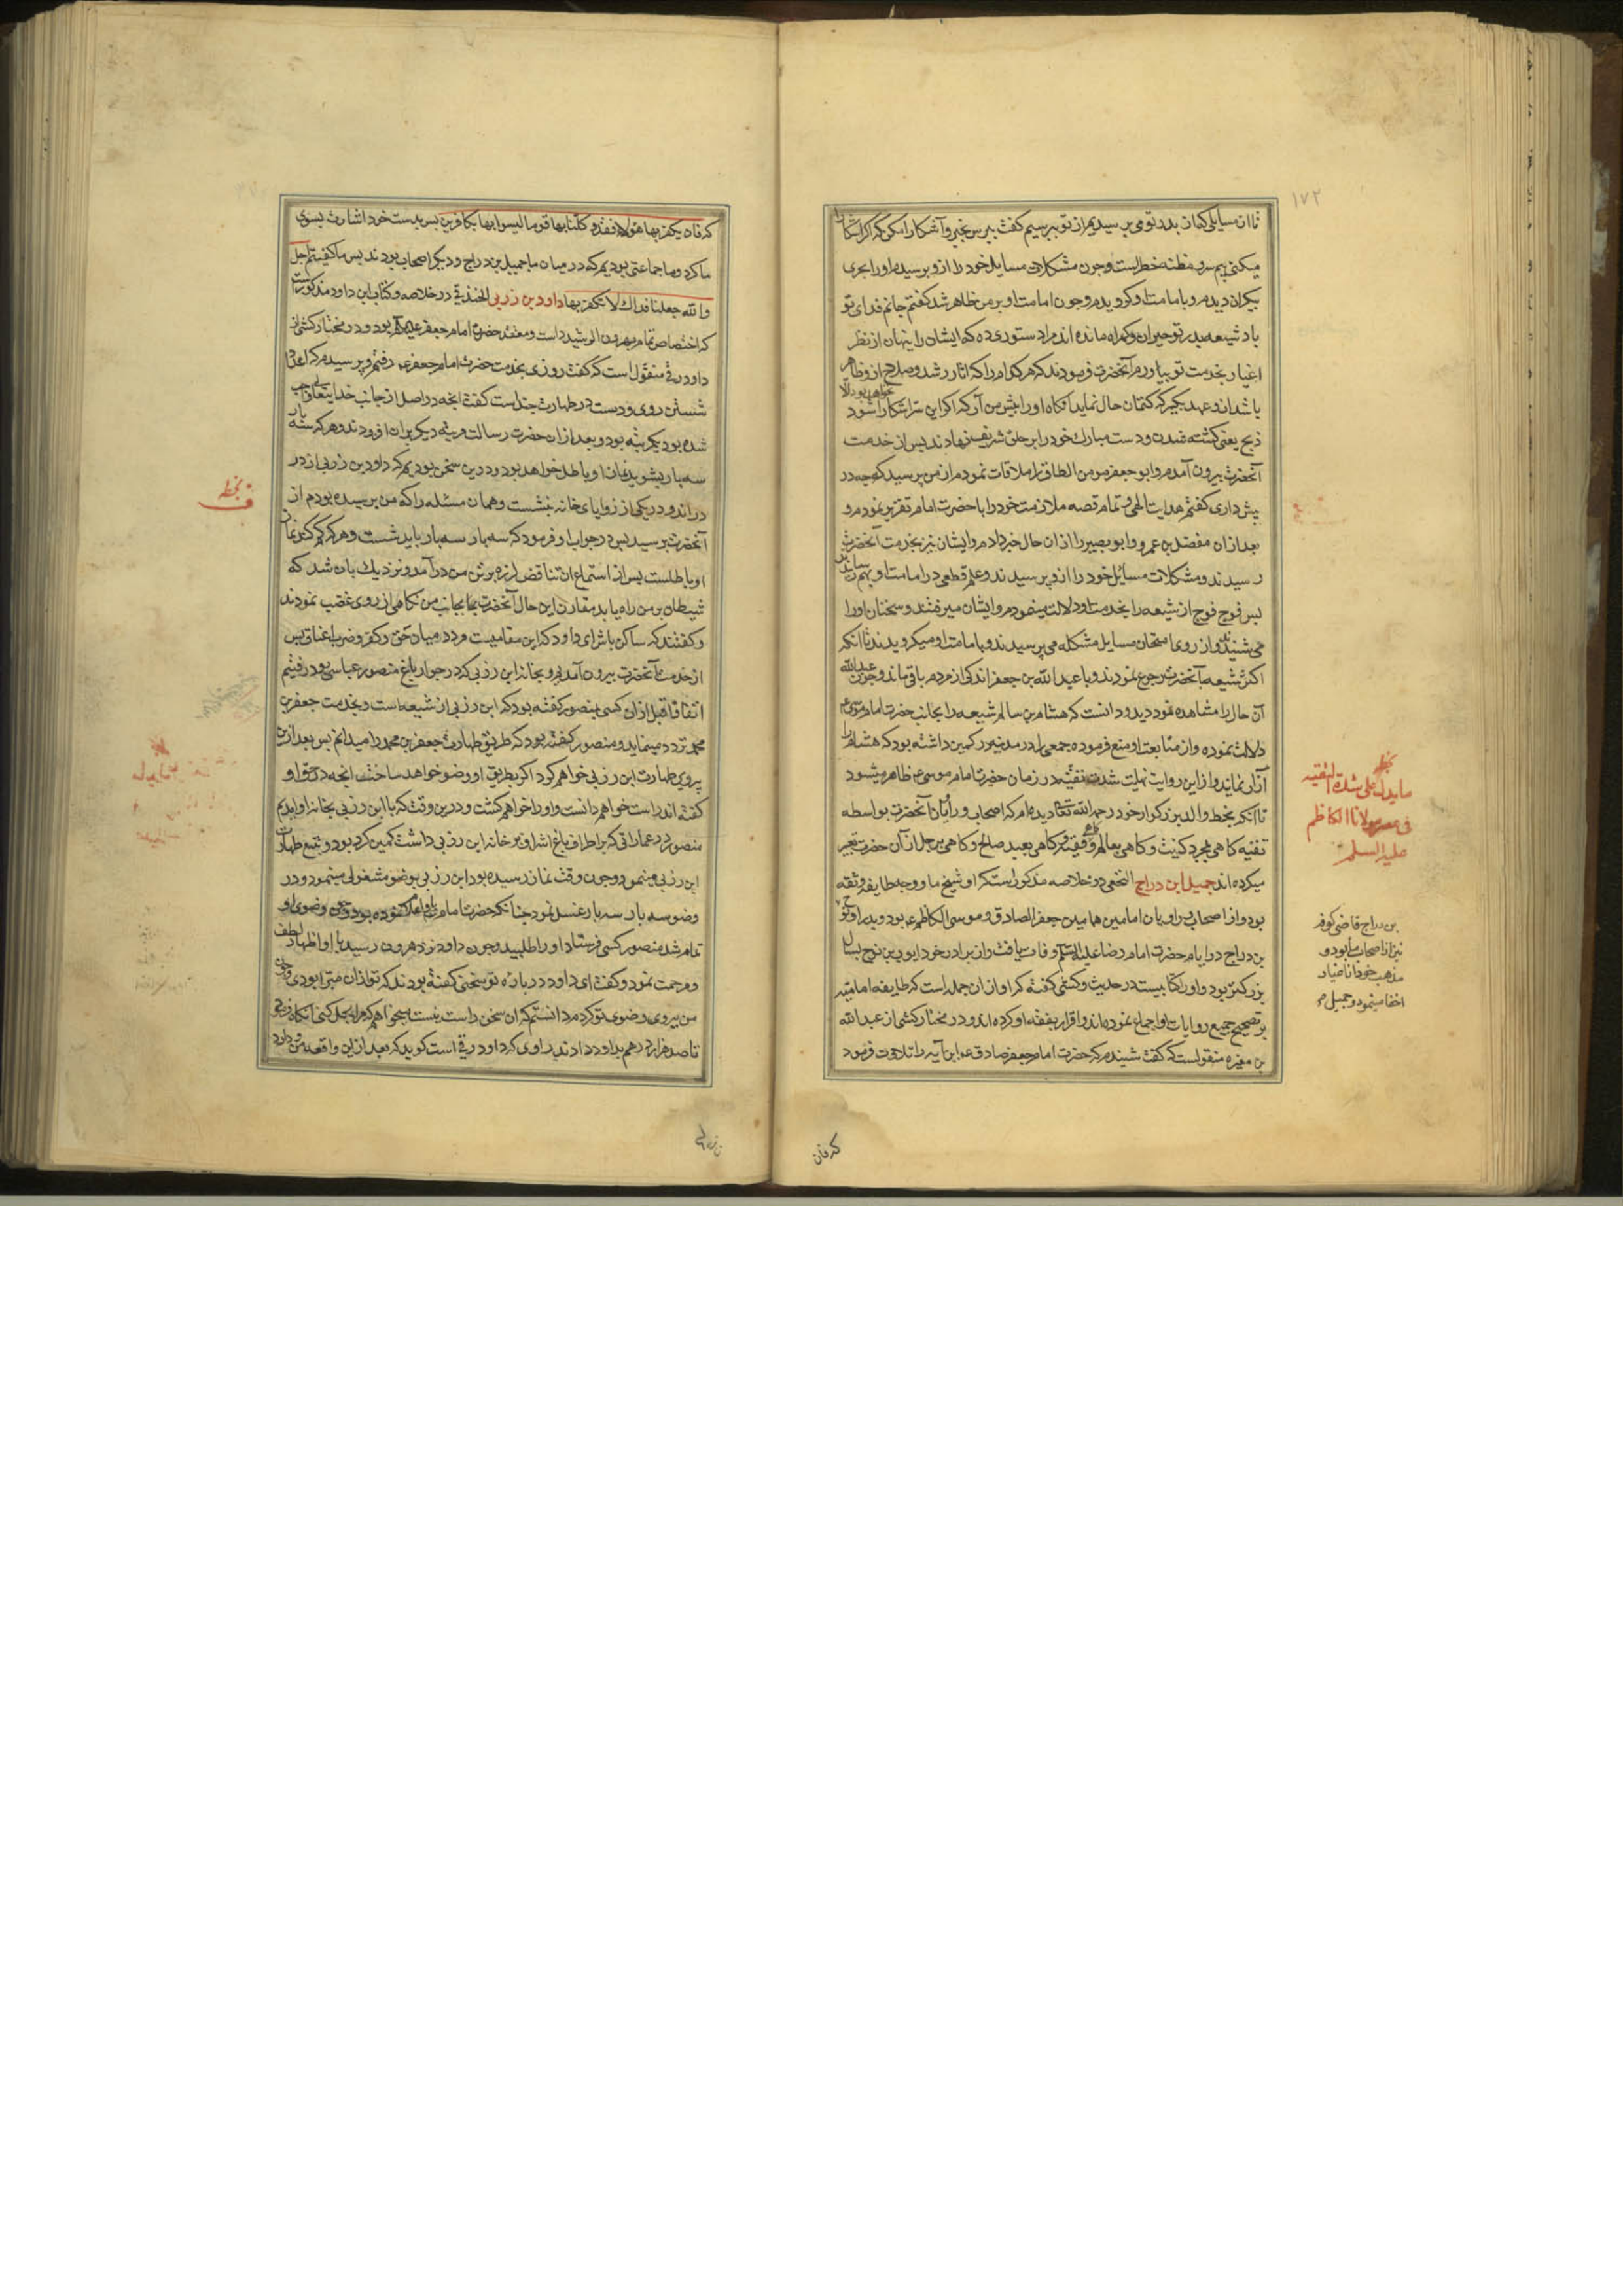 ۱۷۲
تا از مسایلی که از پدر تو می پرسیدیم از تو بپرسیم گفت بپرس غیر و آشکارا مکن که اگر آشکارا
میکنی بیم سر و مظنه خطر است و چون مشکلات مسایل خود را از و پرسیدم او را بحری
بیکران دیدم و با مامت او گرویدم و چون امامت او بر من ظاهر شد گفتم جانم فدای تو
باد شیعه پدر تو حیران و گمراه مانده اند مرا دستوری ده که ایشان را پنهان از نظر
اغیار بخدمت تو بیاورم آنحضرت فرمودند که هر کدام را که اثار رشد و صلاح از و ظاهر
باشد از و عهد بگیر که کتمان حال نماید آنگاه او را پیش من آر که اگر این سر اشکارا شود خواهد بود الا
ذبح یعنی کشته شدن و دست مبارک خود را بر حلق شریف نهادند پس از خدمت
آنحضرت بیرون آمدم و ابو جعفر مومن الطاق را ملاقات نمودم از من پرسید که چه در
پیش داری گفتم هدایت الهی و تمام قصه ملازمت خود را با حضرت امام تقریر نمودم و
بعد از ان مفضل بن عمر و ابو بصیر را از ان حال خبر دادم و ایشان نیز بخدمت آنحضرت
رسیدند و مشکلات مسایل خود را از و پرسیدند و علم قطعی در امامت او بهم رسانیدند
پس فوج فوج از شیعه را بخدمت او دلالت مینمودم و ایشان میرفتند و سخنان او را
می شنیدند و از روی امتحان مسایل مشکله می پرسیدند و با مامت او میگرویدند تا آنکه
اکثر شیعه بآنحضرت رجوع نمودند و با عبد الله بن جعفر اندکی از مردم باقی ماند و چون عبد الله
آن حال را مشاهده نمود دید و دانست که هشام بن سالم شیعه را بجانب حضرت امام موسی ع
دلالت نموده و از متابعت او منع فرموده جمعی را در مدینه در کمین داشته بود که هشام را
آزار نمایند و از این روایت نهایت شدت تقیه در زمان حضرت امام موسی ع ظاهر میشود
تا آنکه بخط والد بزرگوار خود رحمه الله تعالی دیده ام که اصحاب و راویان آنحضرت بواسطه
تقیه گاهی بمجرد کنیت و گاهی بعالم و فقیه و گاهی بعبد صالح و گاهی برجل از آن حضرت تعبیر
میکرده اند جمیل ابن دراج النخعی در خلاصه مذکور است که او شیخ ما و وجه طایفه و ثقه
بود و از اصحاب و راویان امامین همامین جعفر الصادق و موسی الکاظم ع بود و برادر او نوح
بن دراج در ایام حضرت امام رضا علیه السلام وفات یافت و از برادر خود ایوب بن نوح بسال
بزرگتر بود و او را کتابیست در حدیث و کشی گفته که او از ان جمله است که طایفه امامیه
بر تصحیح جمیع روایات او اجماع نموده اند و اقرار بفقه او کرده اند و در مختار کشی از عبد الله
بن مغیره منقولست که گفت شنیدم که حضرت امام جعفر صادق ع این آیه را تلاوت فرمود
که فان
بخطه
ما یدل علی شدة التقیه
فی عصر مولانا الکاظم
علیه السلم
بن دراج قاضی کوفه
نیز از اصحاب ما بود و
مذهب خود را
اخفا مینمود و جمیل
که فان یکفر بها هؤلاء فقد وکلنا بها قوما لیسوا بها بکافرین پس بدست خود اشارت بسوی
ما کرد و ما جماعتی بودیم که در میان ما جمیل بن دراج و دیگر اصحاب بودند پس ما گفتیم اجل
والله جعلنا فداک لا نکفر بها داود بن زربی الخندقی در خلاصه و کتاب ابن داود مذکور است
که اختصاص تمام بهرون الرشید داشت و معتقد حضرت امام جعفر علیه السلام بود و در مختار کشی از
داود رقی منقول است که گفت روزی بخدمت حضرت امام جعفر ع رفتم و پرسیدم که اعداد
شستن روی و دست در طهارت چند است گفت آنچه در اصل از جانب خدایتعالی واجب
شده بود یکمرتبه بود و بعد از ان حضرت رسالت مرتبه دیگر بران افزودند و هر که سه بار
سه بار بشوید نماز او باطل خواهد بود و درین سخن بودیم که داود بن زربی از در
در آمد و در یکی از زوایای خانه بنشست و همان مسئله را که من پرسیده بودم از
آنحضرت پرسید پس در جواب او فرمود که سه بار سه بار باید شست و هر که کم کند نماز
او باطلست پس از استماع ان تناقض لرزه بر تن من در آمد و نزدیک بان شد که
شیطان بر من راه یابد مقارن این حال آنحضرت بجانب من نگاهی از روی غضب نمودند
و گفتند که ساکن باش ای داود که این مقامیست مردد میان حق و کفر و ضرب اعناق پس
از خدمت آنحضرت بیرون آمدیم و بخانه ابن زربی که در جوار باغ منصور عباسی بود رفتیم
اتفاقا قبل از ان کسی بمنصور گفته بود که ابن زربی از شیعه است و بخدمت جعفر بن
محمد تردد مینماید و منصور گفته بود که طریق طهارت جعفر بن محمد را میدانم پس بعد ازین
پیروی طهارت ابن زربی خواهم کرد اگر بطریق او وضو خواهد ساخت آنچه در حق او
گفته اند راست خواهم دانست و او را خواهم کشت و درین وقت که با ابن زربی بخانه او آمدیم
منصور در عماراتی که بر اطراف باغ اشراف بر خانه ابن زربی داشت کمین کرده بود و تتبع طهارت
ابن زربی مینمود و چون وقت نماز رسیده بود ابن زربی بوضو مشغولی مینمود و در
وضو سه بار سه بار غسل نمود چنانکه حضرت امام باو امر فرموده بود و چون وضوی او
تمام شد منصور کسی فرستاد و او را طلبید و چون داود نزد هرون رسید با او اظهار لطف
و مرحمت نمود و گفت ای داود در باره تو سخنی گفته بودند که تو از ان مبرا بودی و چون
من پیروی وضوی تو کردم دانستم که ان سخن راست نیست میخواهم که مرا بحل کنی آنگاه فرمود
تا صد هزار درهم بداود دادند راوی که داود رقی است گوید که بعد از این واقعه من و داود
بخطه